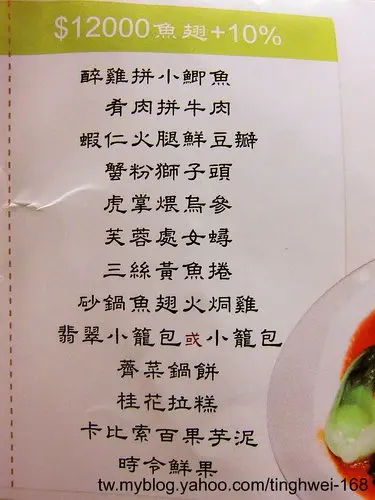 $12000魚翅+10%
醉雞拼小鯽魚
肴肉拼牛肉
蝦仁火腿鮮豆瓣
蟹粉獅子頭
虎掌煨烏參
芙蓉處女蟳
三絲黃魚捲
砂鍋魚翅火焗雞
翡翠小籠包或小籠包
薺菜鍋餅
桂花拉糕
卡比索百果芋泥
時令鮮果
tw.myblog.yahoo.com/tinghwei-168